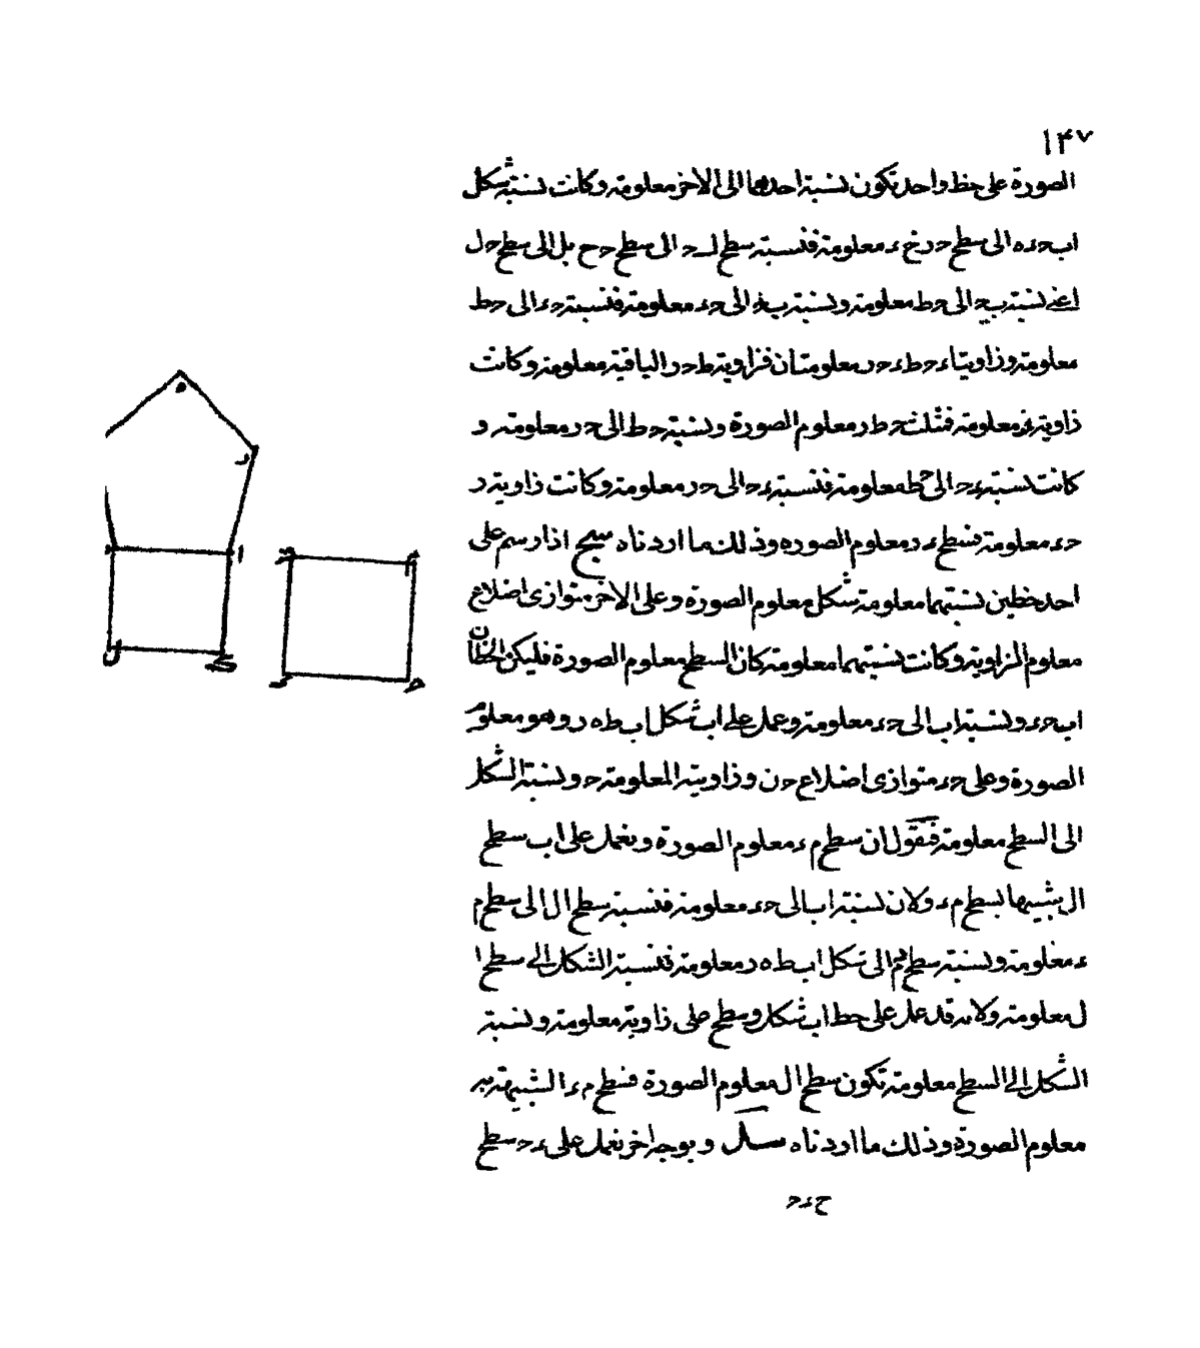 ١۴٧
الصورة على خط واحد تكون نسبة احدهما الى الاخر معلومة وكانت نسبة شكل
اب حء ه الى سطح حد معلومة فنسبة سطح ل ح الى سطح ح ح بل الى سطح ح ل
اعنى نسبة ب ح الى ح ط معلومة ونسبة ب ح الى حء معلومة فنسبة حء الى حط
معلومة وزاويتا ء حط ء حر معلومتان فزاوية ط حر الباقية معلومة وكانت
زاوية معلومة فمثلث حط ر معلوم الصورة ونسبة حط الى حر معلومة و
كانت نسبة ءح الى حط معلومة فنسبة ءح الى حر معلومة وكانت زاوية ر
حء معلومة فسطح ء ر معلوم الصوره وذلك ما اردناه سج اذا رسم على
احد خطين نسبتهما معلومة شكل معلوم الصورة وعلى الاخر متوازى اضلاع
معلوم الزاوية وكانت نسبتهما معلومة كان السطح معلوم الصورة فليكن الخطان
اب حء ونسبة اب الى حء معلومة وعمل على اب شكل اب ط ه ر وهو معلوم
الصورة وعلى حء متوازى اضلاع حن وزاويته المعلومة ح ونسبة الشكل
الى السطح معلومة فنقول ان سطح م ء معلوم الصورة ونعمل على اب سطح
ال شبيها بسطح م ء ولان نسبة اب الى حء معلومة فنسبة سطح ال الى سطح م
ء معلومة ونسبة سطح م ء الى شكل اب ط ه ر معلومة فنسبة الشكل الى سطح ا
ل معلومة ولانه قد عمل على خط اب شكل وسطح على زاوية معلومة ونسبة
الشكل الى السطح معلومة تكون سطح ال معلوم الصورة فسطح م ء الشبيهة به
معلوم الصورة وذلك ما اردناه وبوجه اخر نعمل على ءح سطح
ح ء ح